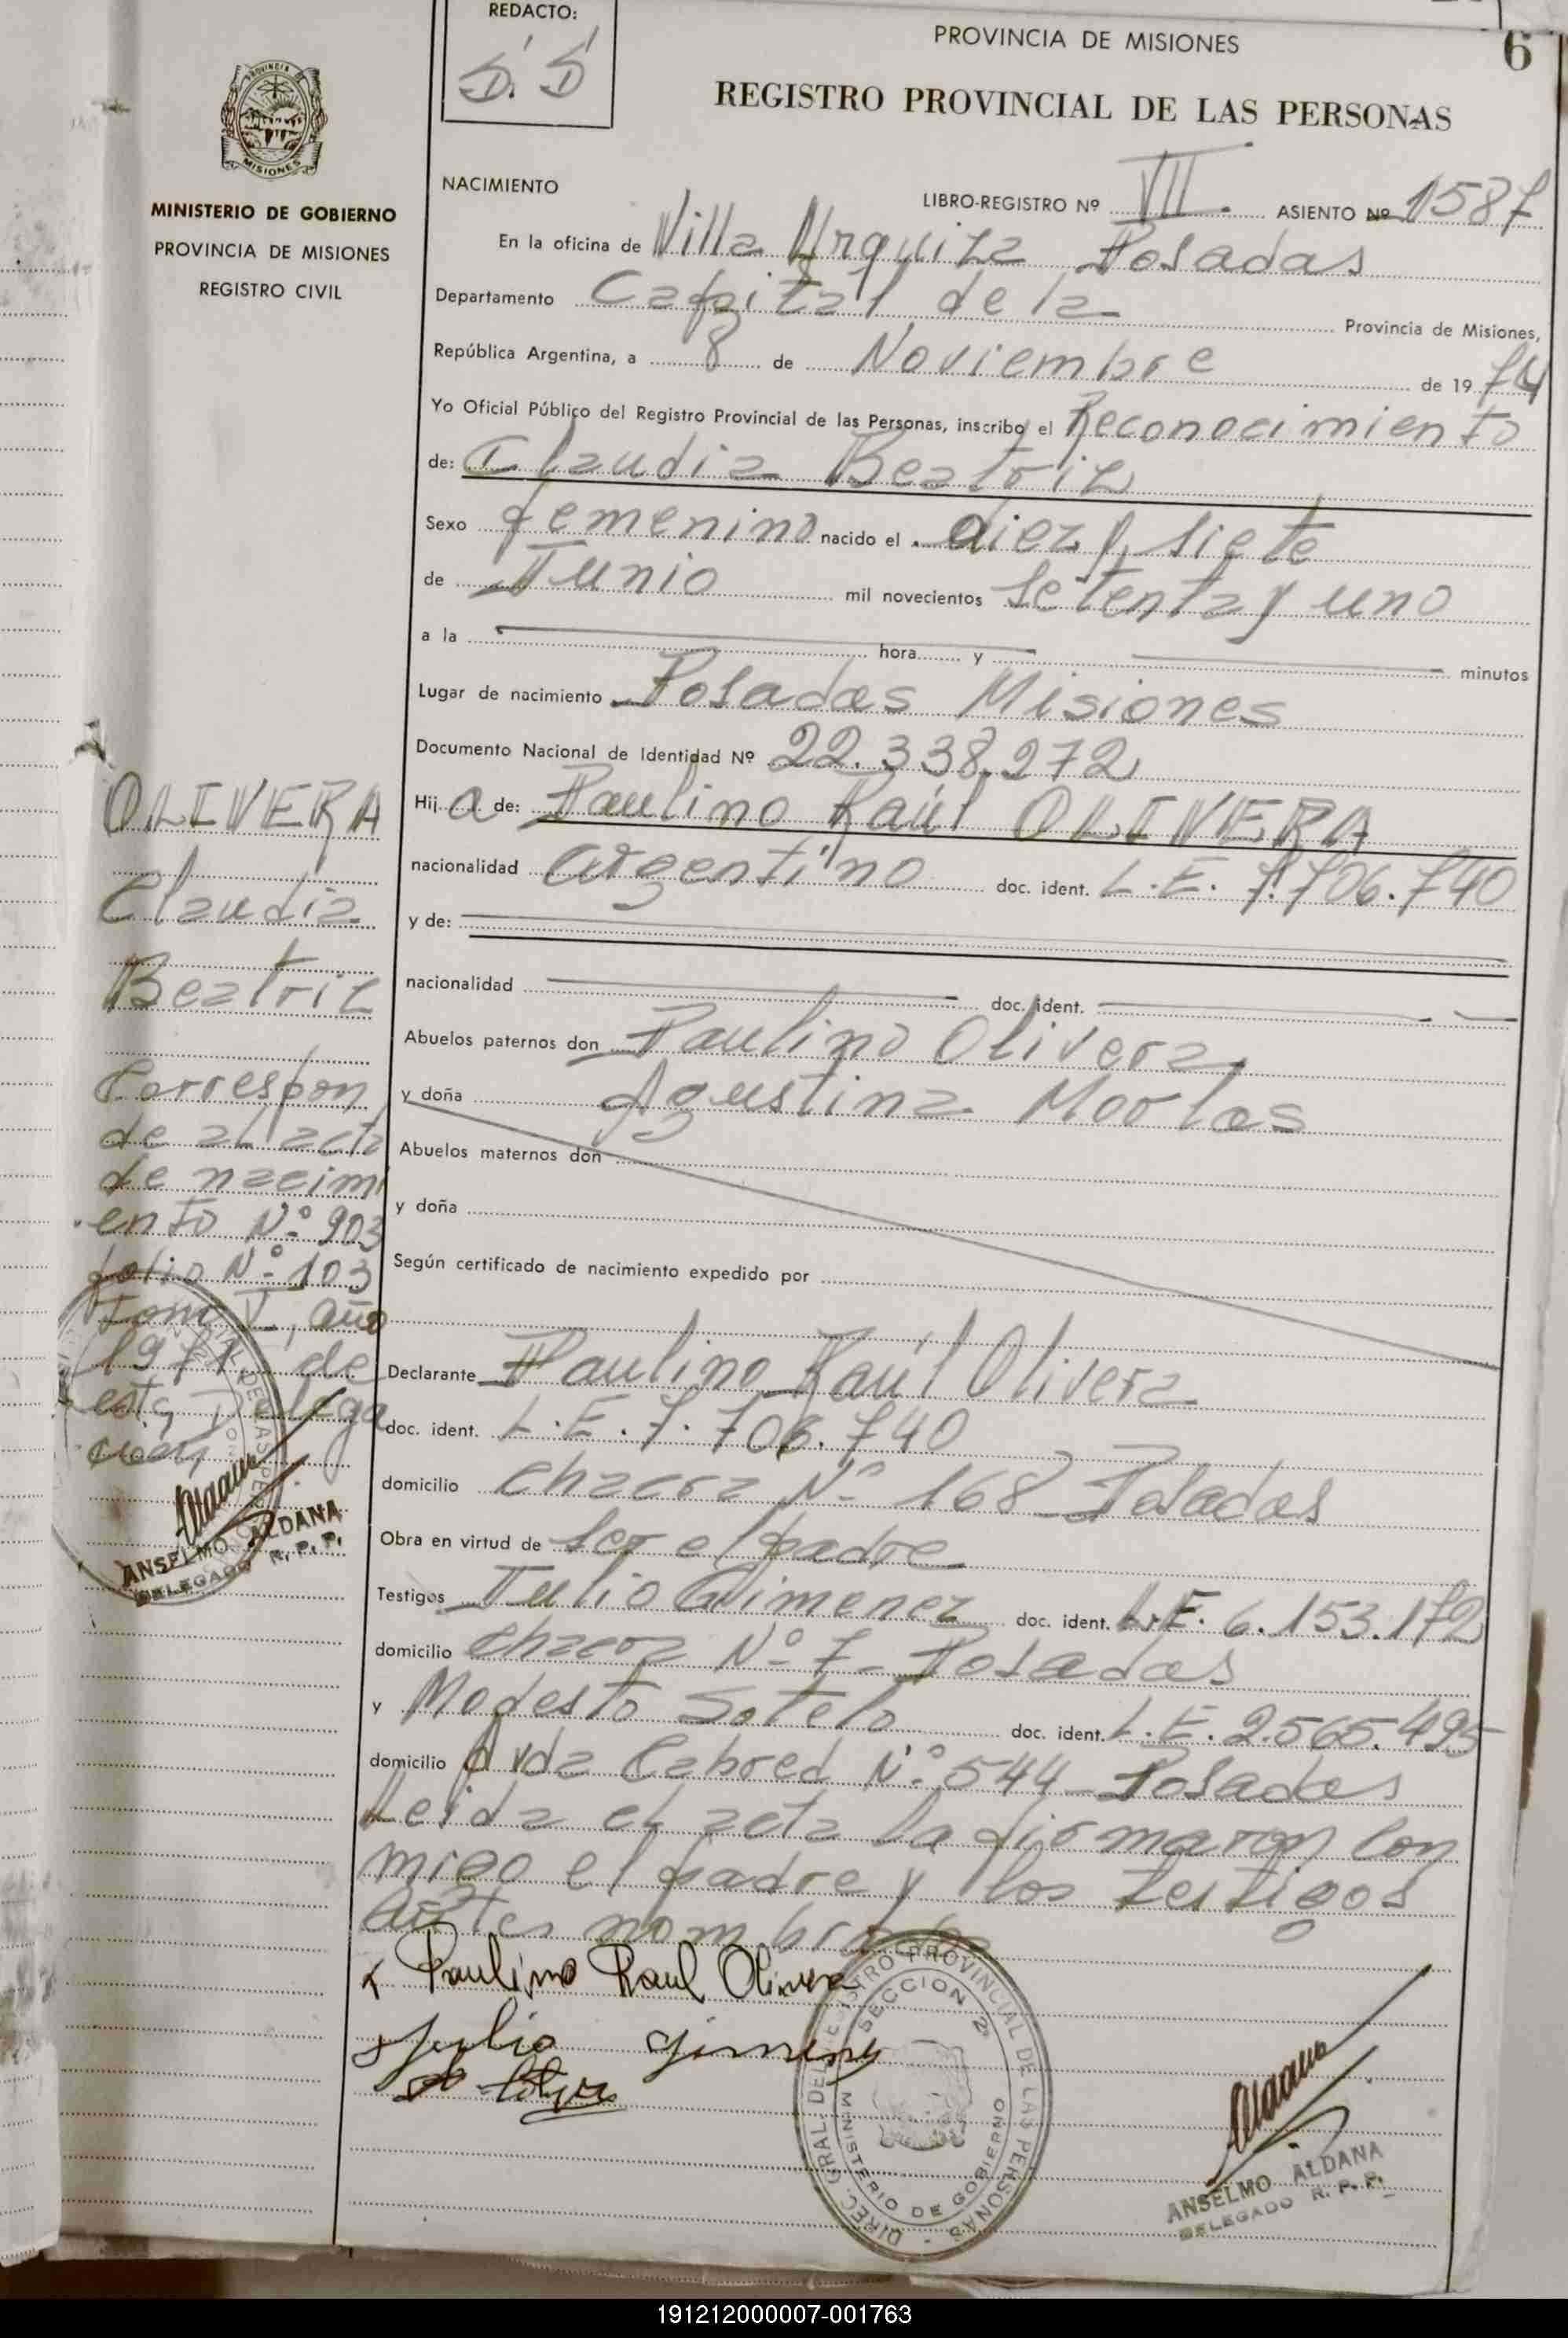 REDACTO:
D. D
PROVINCIA DE MISIONES
6
REGISTRO PROVINCIAL DE LAS PERSONAS
PROVINCIA
MISIONES
MINISTERIO DE GOBIERNO
PROVINCIA DE MISIONES
REGISTRO CIVIL
NACIMIENTO
LIBRO-REGISTRO Nº VII. ASIENTO Nº 1587
En la oficina de Villa Urquiza Posadas
Departamento Capital de la Provincia de Misiones,
República Argentina, a 8 de Noviembre de 1974
Yo Oficial Público del Registro Provincial de las Personas, inscribo el Reconocimiento
de: Claudia Beatriz
Sexo femenino nacido el diez y siete
de Junio mil novecientos setenta y uno
a la hora y minutos
Lugar de nacimiento Posadas Misiones
Documento Nacional de Identidad Nº 22.338.272
Hija de: Paulino Raúl OLIVERA
nacionalidad argentino doc. ident. L.E. 7.706.740
y de:
nacionalidad doc. ident.
Abuelos paternos don Paulino Olivera
y doña Agustina Moolas
Abuelos maternos don
y doña
Según certificado de nacimiento expedido por
Declarante Paulino Raúl Olivera
doc. ident. L.E. 7.706.740
domicilio chacra Nº 168 Posadas
Obra en virtud de ser el padre
Testigos Julio Gimenez doc. ident. L.E. 6.153.172
domicilio chacra Nº 7- Posadas
y Modesto Sotelo doc. ident. L.E. 2.565.495
domicilio Avda Cabred Nº 544- Posadas
Leida el acta la firmaron con
migo el padre y los testigos
antes nombrados
Paulino Raul Olivera
Julio Gimenez
OLIVERA
Claudia
Beatriz
Correspon
de al acta
de nacimi
ento Nº 903
folio Nº 103
tomo V, año
1971 de
esta Delega
cion
ANSELMO ALDANA
DELEGADO R. P. P.
DIREC. GRAL. DEL REGISTRO PROVINCIAL DE LAS PERSONAS -
SECCION 2ª
MINISTERIO DE GOBIERNO
ANSELMO ALDANA
DELEGADO R. P. P.
191212000007-001763